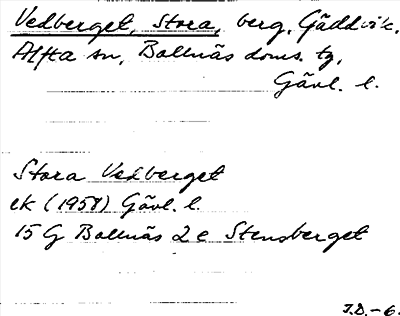 Vedberget, Stora, berg, Gäddvik,
Alfta sn, Bollnäs doms. tg,
Gävl. l.
Stora Vedberget
ek (1958) Gävl. l.
15 G Bollnäs 2 e Stensberget
J.D.-6.